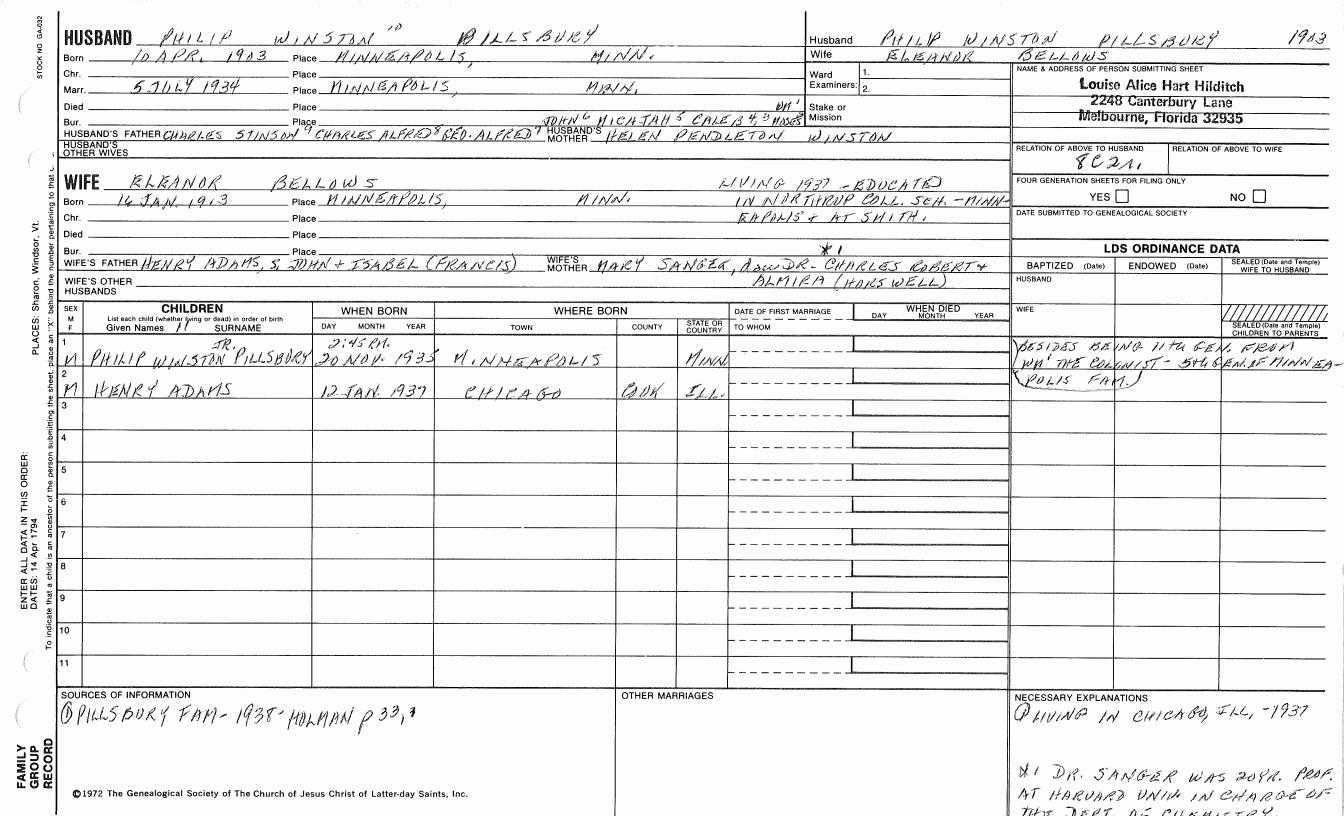 STOCK NO GA-032
PLACES: Sharon, Windsor, Vt.
ENTER ALL DATA IN THIS ORDER:
DATES: 14 Apr 1794
To indicate that a child is an ancestor of the person submitting the sheet, place an "X" behind the number pertaining to that c
FAMILY
GROUP
RECORD
HUSBAND PHILIP WINSTON 10 PILLSBURY
Born 10 APR. 1903 Place MINNEAPOLIS, MINN.
Chr. Place
Marr. 5 JULY 1934 Place MINNEAPOLIS, MINN.
Died Place
WM1
Bur. Place JOHN6 MICAJAH5 CALEB4,3 MOSES2
HUSBAND'S FATHER CHARLES STINSON9 CHARLES ALFRED8 GEO. ALFRED7 HUSBAND'S MOTHER HELEN PENDLETON WINSTON
HUSBAND'S
OTHER WIVES
WIFE ELEANOR BELLOWS LIVING 1937 - EDUCATED
Born 14 JAN. 1913 Place MINNEAPOLIS, MINN. IN NORTHRUP COLL. SCH. - MINN-
Chr. Place EAPOLIS + AT SMITH.
Died Place
Bur. Place *1
WIFE'S FATHER HENRY ADAMS, S. JOHN + ISABEL (FRANCIS) WIFE'S MOTHER MARY SANGER, DR. CHARLES ROBERT +
WIFE'S OTHER
HUSBANDS ALMIRA (HORSWELL)
Husband PHILIP WINSTON PILLSBURY 1903
Wife ELEANOR BELLOWS
Ward
Examiners: 1.
2.
Stake or
Mission
NAME & ADDRESS OF PERSON SUBMITTING SHEET
Louise Alice Hart Hilditch
2248 Canterbury Lane
Melbourne, Florida 32935
RELATION OF ABOVE TO HUSBAND RELATION OF ABOVE TO WIFE
8C2R.
FOUR GENERATION SHEETS FOR FILING ONLY
YES NO
DATE SUBMITTED TO GENEALOGICAL SOCIETY
LDS ORDINANCE DATA
BAPTIZED (Date) ENDOWED (Date) SEALED (Date and Temple)
WIFE TO HUSBAND
HUSBAND
WIFE
SEALED (Date and Temple)
CHILDREN TO PARENTS
SEX
M
F
CHILDREN
List each child (whether living or dead) in order of birth
Given Names 11 SURNAME
WHEN BORN
DAY MONTH YEAR
WHERE BORN
TOWN COUNTY STATE OR COUNTRY
DATE OF FIRST MARRIAGE
TO WHOM
WHEN DIED
DAY MONTH YEAR
1 JR. 2:45 P.M.
M PHILIP WINSTON PILLSBURY 20 NOV. 1935 MINNEAPOLIS MINN.
2
M HENRY ADAMS 12 JAN. 1937 CHICAGO COOK ILL.
3
4
5
6
7
8
9
10
11
(BESIDES BEING 11TH GEN. FROM
WM1 THE COLONIST - 5TH GEN. OF MINNEA-
POLIS FAM.)
SOURCES OF INFORMATION
① PILLSBURY FAM - 1938 - HOLMAN p 33,
©1972 The Genealogical Society of The Church of Jesus Christ of Latter-day Saints, Inc.
OTHER MARRIAGES
NECESSARY EXPLANATIONS
① LIVING IN CHICAGO, ILL, - 1937
*1 DR. SANGER WAS 20 YR. PROF.
AT HARVARD UNIV. IN CHARGE OF
THE DEPT. OF CHEMISTRY.